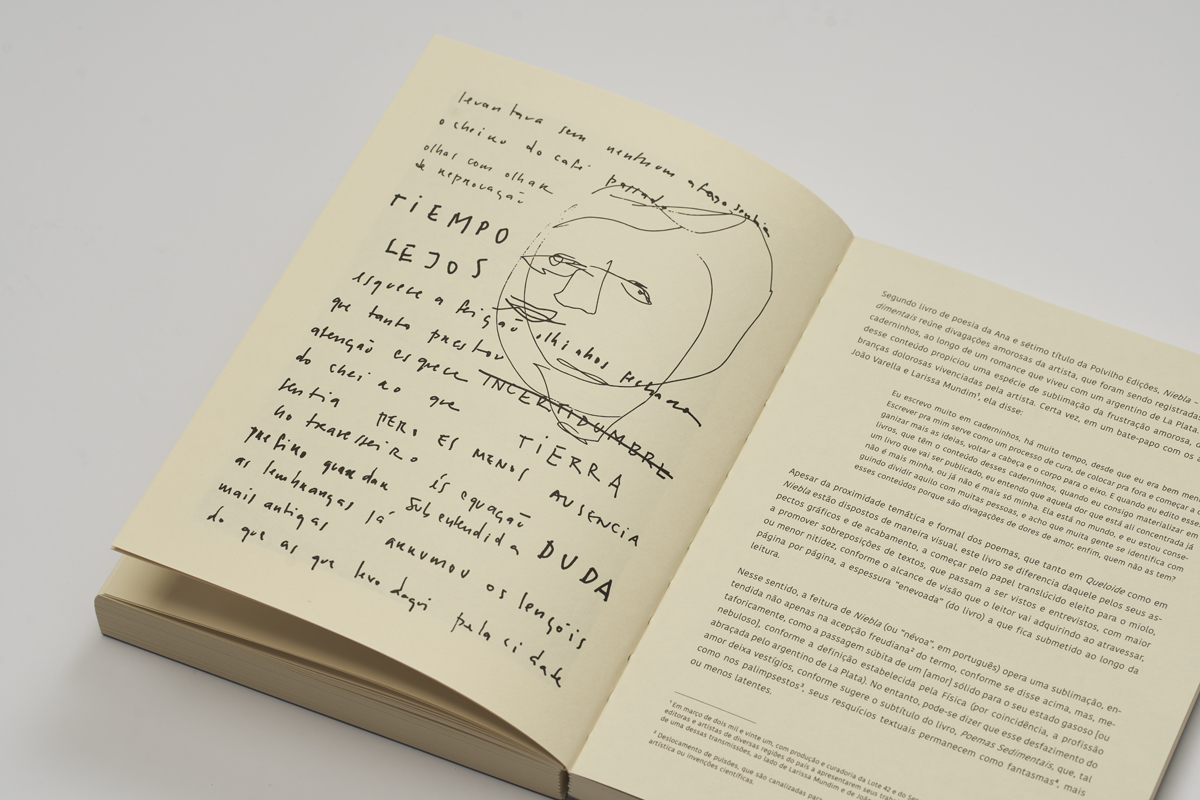 levantava sem nenhum afago sentia
o cheiro do café passado
olhos com olhar
de reprovação
TIEMPO
LEJOS
esquece a feição olhinhos fechados
que tanto prestou
atenção esquece INCERTIDUMBRE
do cheiro que TIERRA
sentia PERO ES MENOS AUSENCIA
no travesseiro és equação
que ficou quando subentendida DUDA
as lembranças já arrumou os lençóis
mais antigas
do que as que levo daqui pela cidade
Segundo livro de poesia da Ana e sétimo título da Polvilho Edições, Niebla –
dimentais reúne divagações amorosas da artista, que foram sendo registradas
caderninhos, ao longo de um romance que viveu com um argentino de La Plata.
desse conteúdo propiciou uma espécie de sublimação da frustração amorosa, d
branças dolorosas vivenciadas pela artista. Certa vez, em um bate-papo com os
João Varella e Larissa Mundim¹, ela disse:
Eu escrevo muito em caderninhos, há muito tempo, desde que eu era bem men
Escrever pra mim serve como um processo de cura, de colocar pra fora e começar a
ganizar mais as ideias, voltar a cabeça e o corpo para o eixo. E quando eu edito esse
livros, que têm o conteúdo desses caderninhos, quando eu consigo materializar em
um livro que vai ser publicado, eu entendo que aquela dor que está ali concentrada já
não é mais minha, ou já não é mais só minha. Ela está no mundo, e eu estou conse-
guindo dividir aquilo com muitas pessoas, e acho que muita gente se identifica com
esses conteúdos porque são divagações de dores de amor, enfim, quem não as tem?
Apesar da proximidade temática e formal dos poemas, que tanto em Queloide como em
Niebla estão dispostos de maneira visual, este livro se diferencia daquele pelos seus as-
pectos gráficos e de acabamento, a começar pelo papel translúcido eleito para o miolo,
a promover sobreposições de textos, que passam a ser vistos e entrevistos, com maior
ou menor nitidez, conforme o alcance de visão que o leitor vai adquirindo ao atravessar,
página por página, a espessura "enevoada" (do livro) a que fica submetido ao longo da
leitura.
Nesse sentido, a feitura de Niebla (ou "névoa", em português) opera uma sublimação, en-
tendida não apenas na acepção freudiana² do termo, conforme se disse acima, mas, me-
taforicamente, como a passagem súbita de um [amor] sólido para o seu estado gasoso [ou
nebuloso], conforme a definição estabelecida pela Física (por coincidência, a profissão
abraçada pelo argentino de La Plata). No entanto, pode-se dizer que esse desfazimento do
amor deixa vestígios, conforme sugere o subtítulo do livro, Poemas Sedimentais, que, tal
como nos palimpsestos³, seus resquícios textuais permanecem como fantasmas⁴, mais
ou menos latentes.
¹ Em março de dois mil e vinte um, com produção e curadoria da Lote 42 e do Se
editoras e artistas de diversas regiões do país a apresentarem seus trab
de uma dessas transmissões, ao lado de Larissa Mundim e de João
² Deslocamento de pulsões, que são canalizadas para
artística ou invenções científicas.